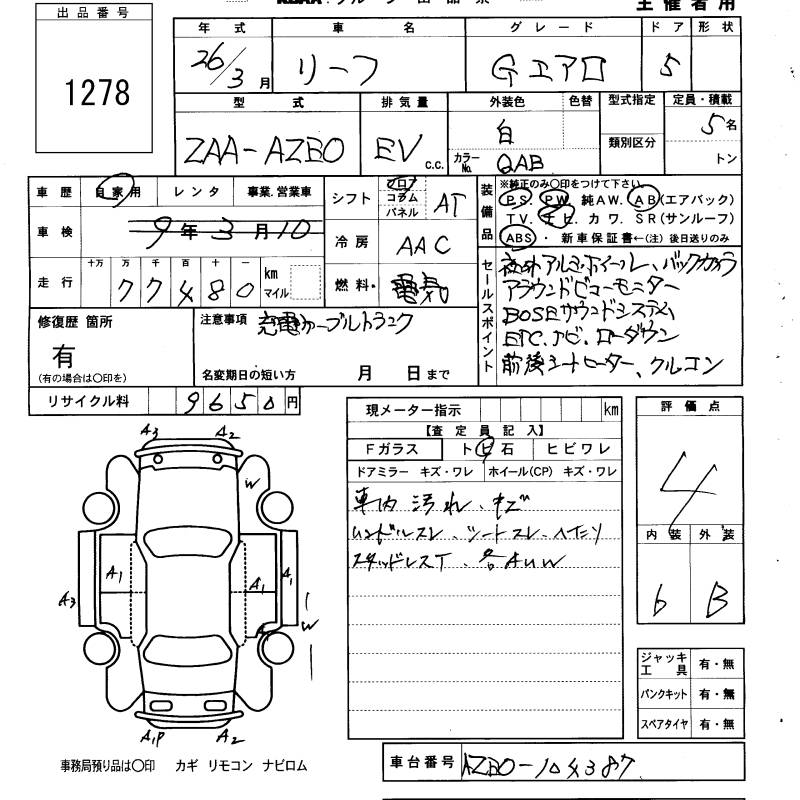 主催者用
出品番号
1278
年式 車名 グレード ドア 形状
26/3月 リーフ Gエアロ 5
型式 排気量 外装色 色替 型式指定 定員・積載
ZAA-AZE0 EV c.c. 白 5名
カラーNo. QAB 類別区分 トン
車歴 自家用 レンタ 事業.営業車
シフト フロア コラム パネル AT
装備品 ※純正のみ〇印をつけて下さい
PS PW 純AW. AB(エアバック)
TV. ナビ. カワ. SR(サンルーフ)
ABS・ 新車保証書←(注) 後日送りのみ
車検 9年3月10
冷房 AAC
走行 十万 万 千 百 十 一
77480 km マイル
燃料 電気
セールスポイント
社外アルミホイール、バックカメラ
アラウンドビューモニター
BOSEサウンドシステム
ETC.ナビ.ローダウン
前後シートヒーター、クルコン
修復歴 箇所
有
(有の場合は〇印を)
注意事項 充電ケーブルトランク
名変期日の短い方 月 日まで
リサイクル料 9650円
現メーター指示 km
【査定員記入】
Fガラス トビ石 ヒビワレ
ドアミラー キズ・ワレ ホイール(CP) キズ・ワレ
車内 汚れ、キズ
ハンドルスレ、シートスレ、ヘタリ
スタッドレスT、各AUW
評価点
4
内装 外装
6 B
A3 A2
W
A1 A1 A1
A3
W
A1P A2
ジャッキ工具 有・無
パンクキット 有・無
スペアタイヤ 有・無
事務局預り品は〇印 カギ リモコン ナビロム
車台番号 AZE0-104387